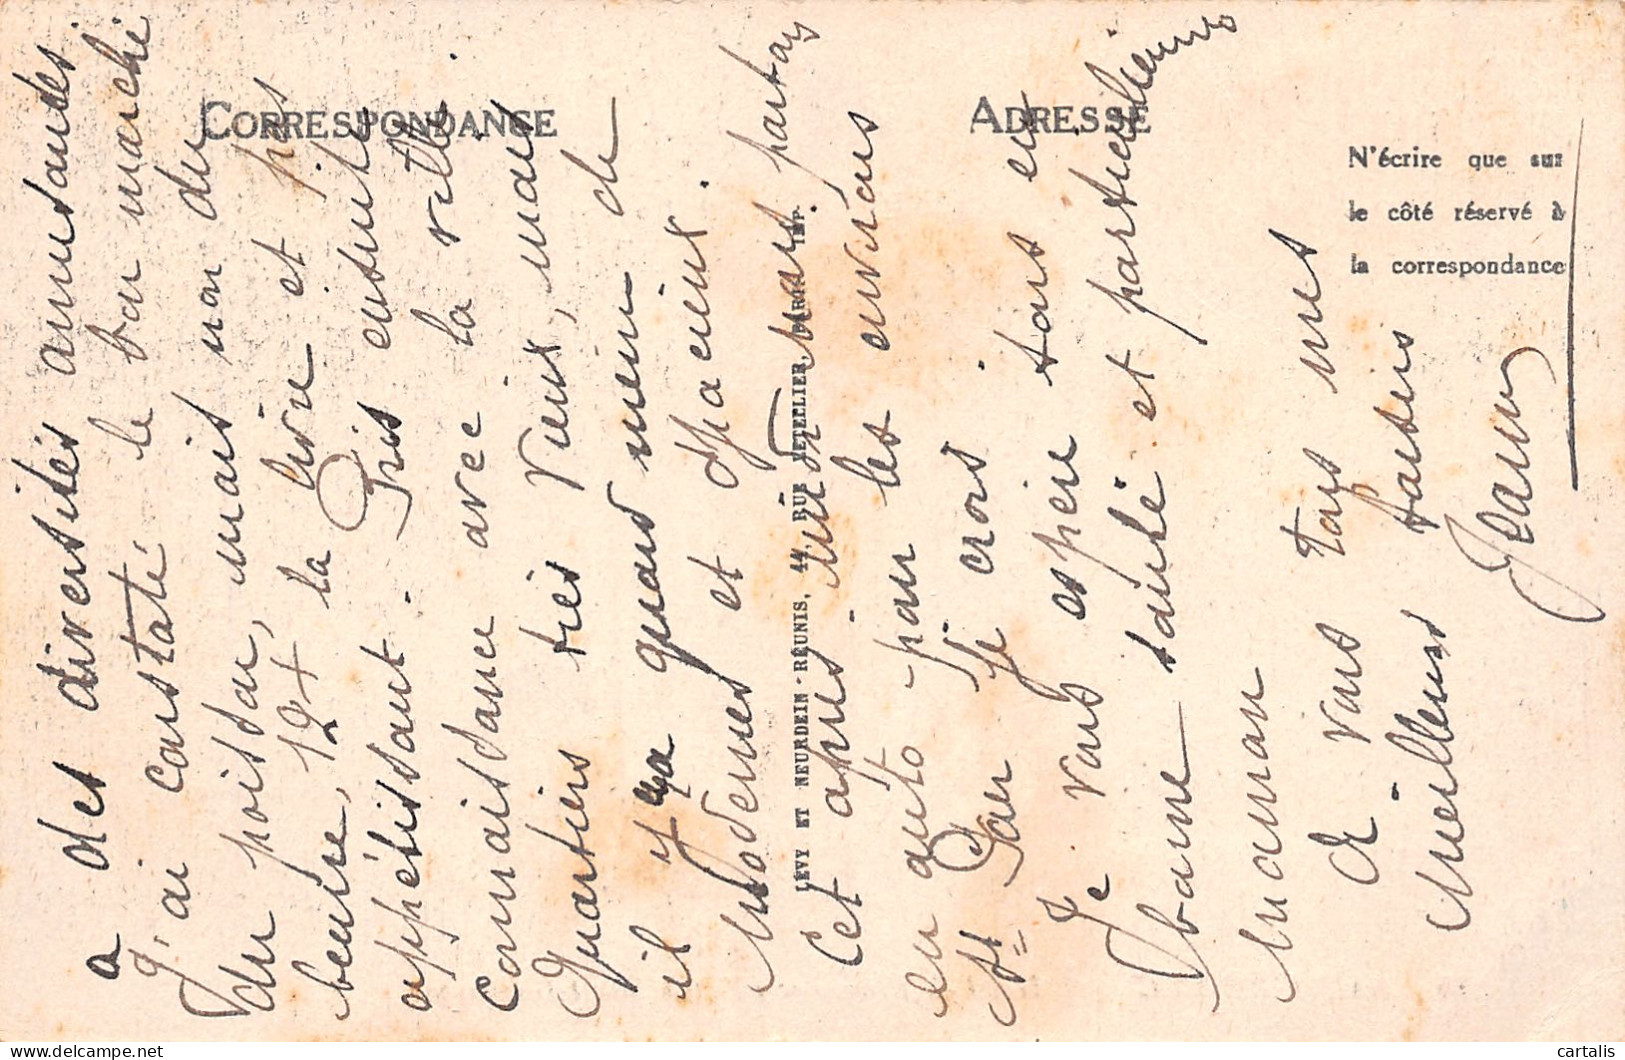 CORRESPONDANCE
ADRESSE
N'écrire que sur
le côté réservé à
la correspondance
LÉVY ET NEURDEIN-RÉUNIS, 44, RUE LETELIER, PARIS IMP.
a des diversités amusantes
J'ai constaté le bon marché
du poisson, mais non du
beurre, 12+ la livre et pas
appétissant. Pris ensuite
connaissance avec la ville.
Quartiers très vieux, mais
il y en a quand même de
modernes et spacieux.
Cet après-midi nous partons
en auto pour les environs
St Pair je crois.
Je vous espère tous en
bonne santé et particulièrement
maman
A vous tous mes
meilleurs baisers
Jeanne
cartalis